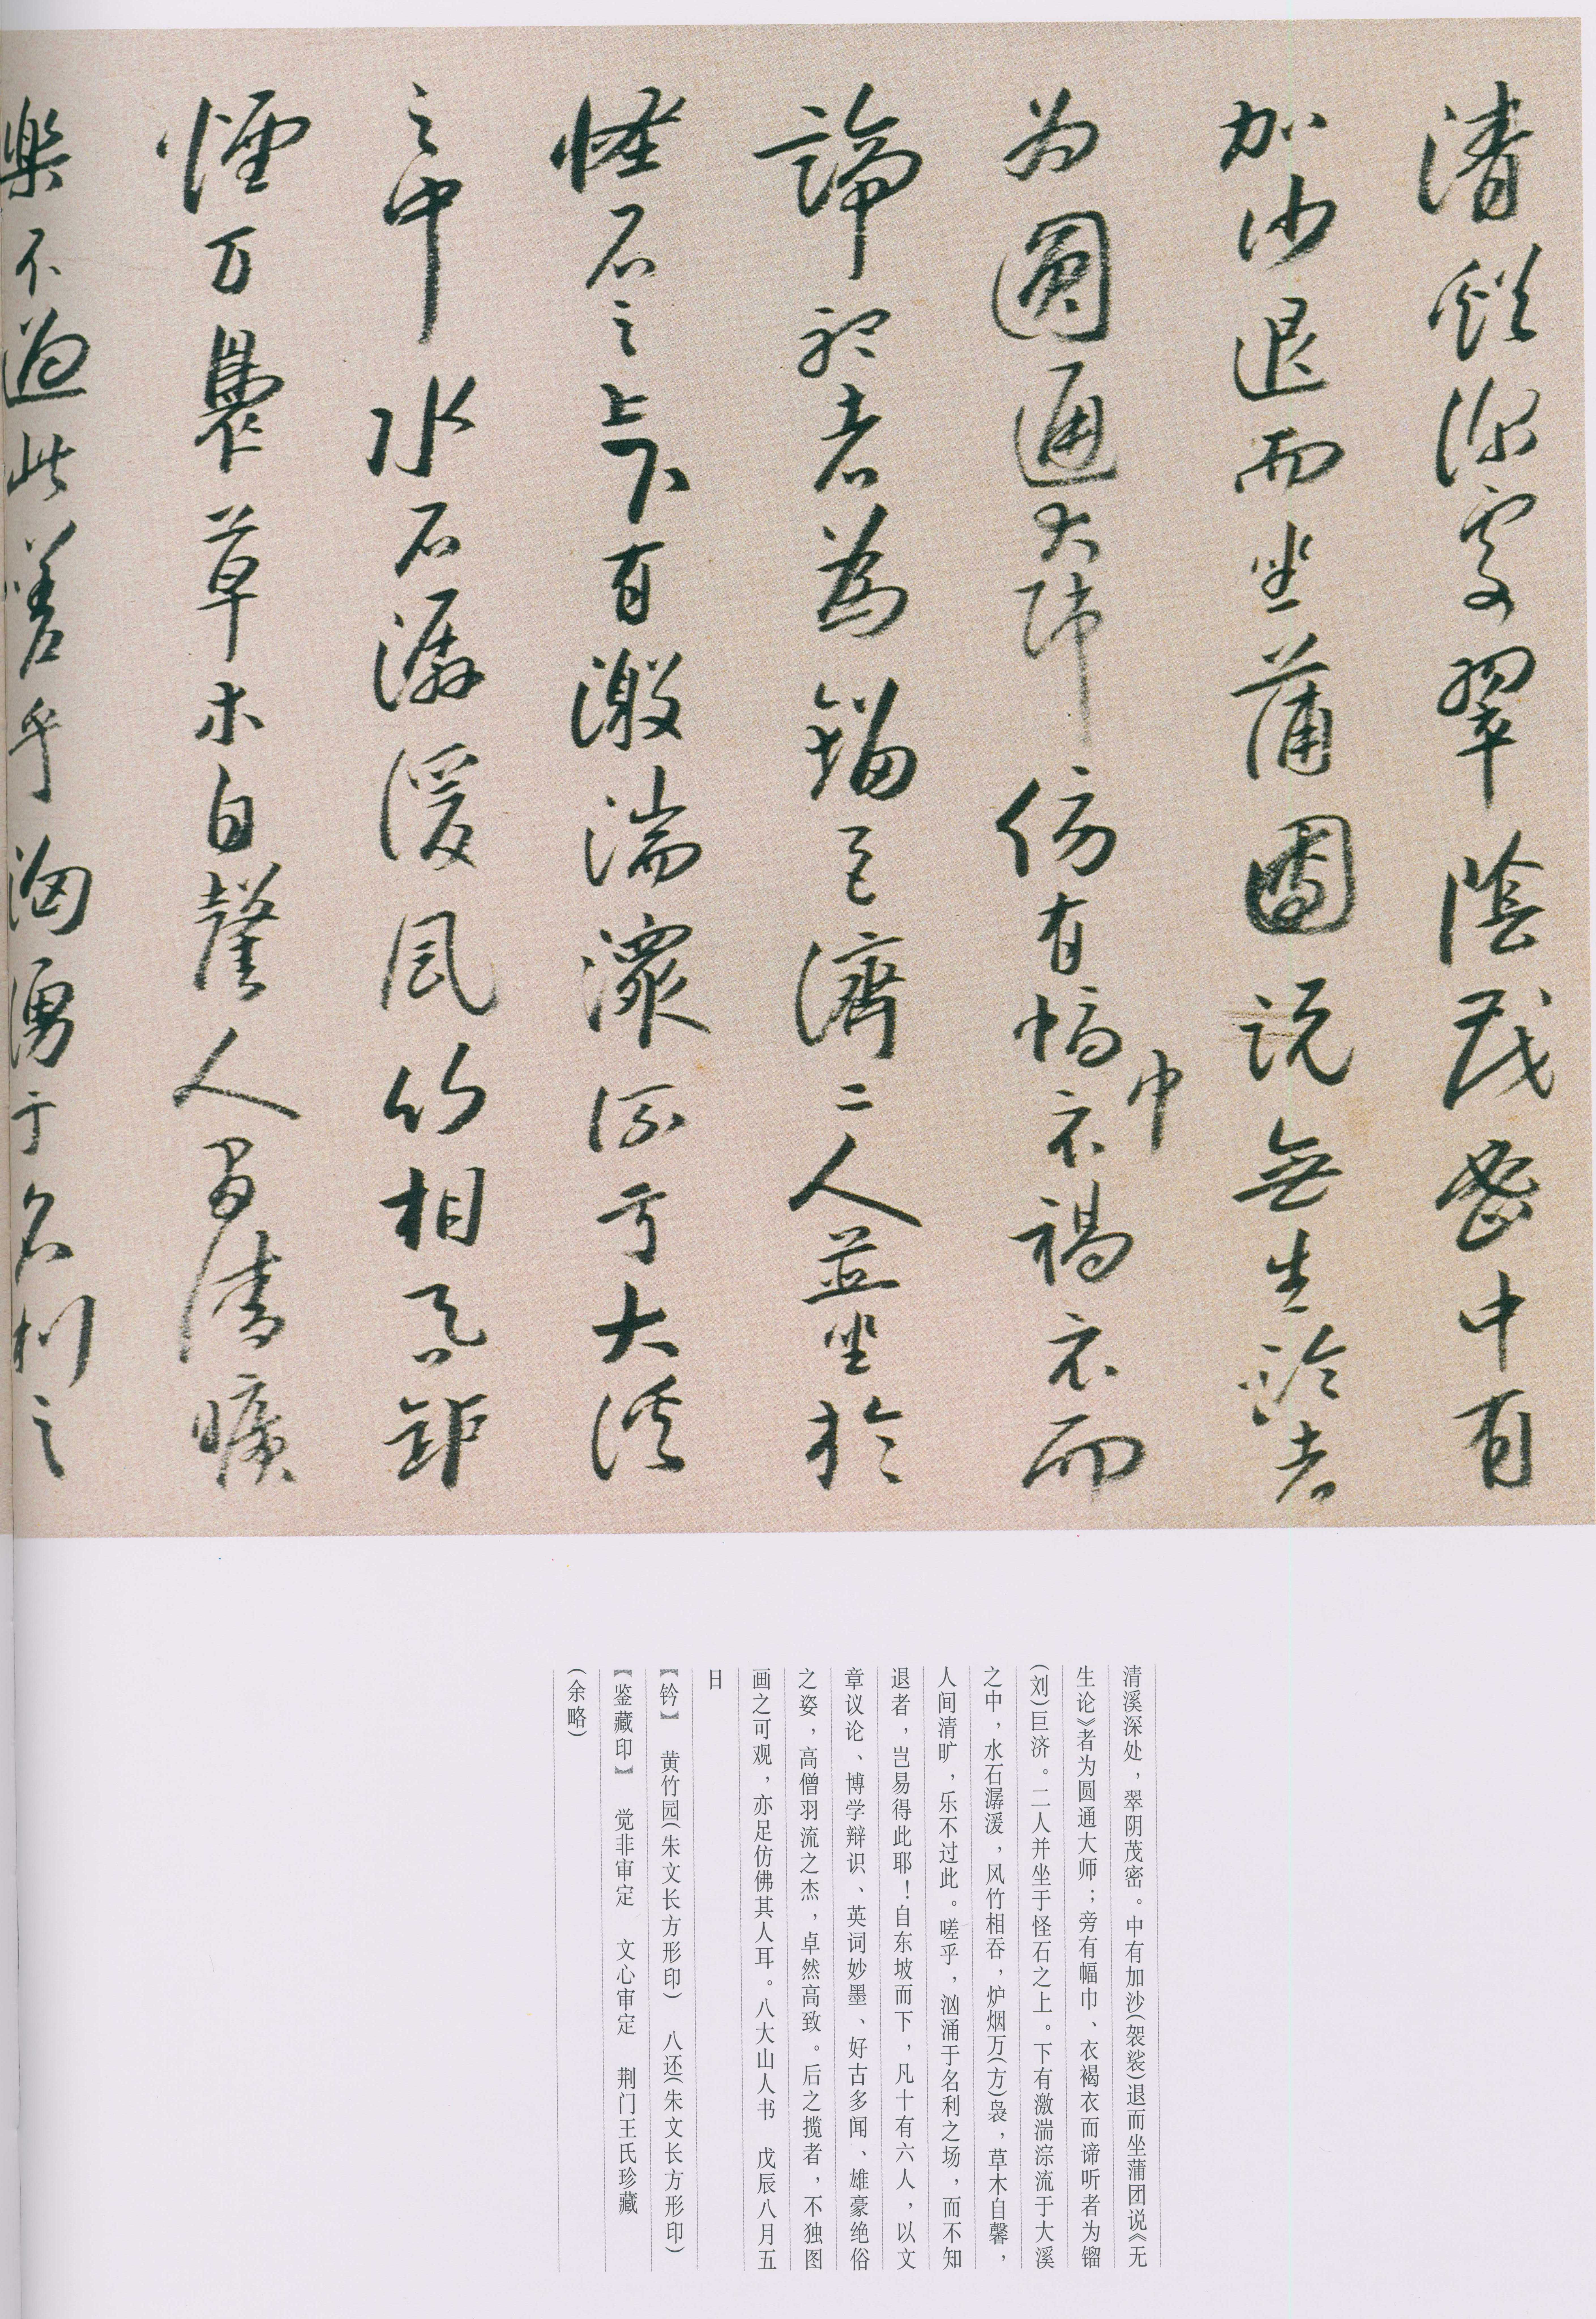 清谿深處翠陰茂密中有
加沙退而坐蒲團說無生論者
为圓通大師傍有幅巾衣褐衣而
諦聽者為鎦巨濟二人並坐於
怪石之上下有激湍潀流于大溪
之中水石潺湲風竹相吞鈩
煙万裊草木自馨人間清曠
樂不過此嗟乎洶湧于名利之
清溪深处，翠阴茂密。中有加沙(袈裟)退而坐蒲团说《无
生论》者为圆通大师；旁有幅巾、衣褐衣而谛听者为镏
(刘)巨济。二人并坐于怪石之上。下有激湍淙流于大溪
之中，水石潺湲，风竹相吞，炉烟万(方)袅，草木自馨，
人间清旷，乐不过此。嗟乎，汹涌于名利之场，而不知
退者，岂易得此耶！自东坡而下，凡十有六人，以文
章议论、博学辩识、英词妙墨、好古多闻、雄豪绝俗
之姿，高僧羽流之杰，卓然高致。后之揽者，不独图
画之可观，亦足仿佛其人耳。八大山人书　戊辰八月五
日
【钤】　黄竹园(朱文长方形印)　八还(朱文长方形印)
【鉴藏印】　觉非审定　文心审定　荆门王氏珍藏
(余略)